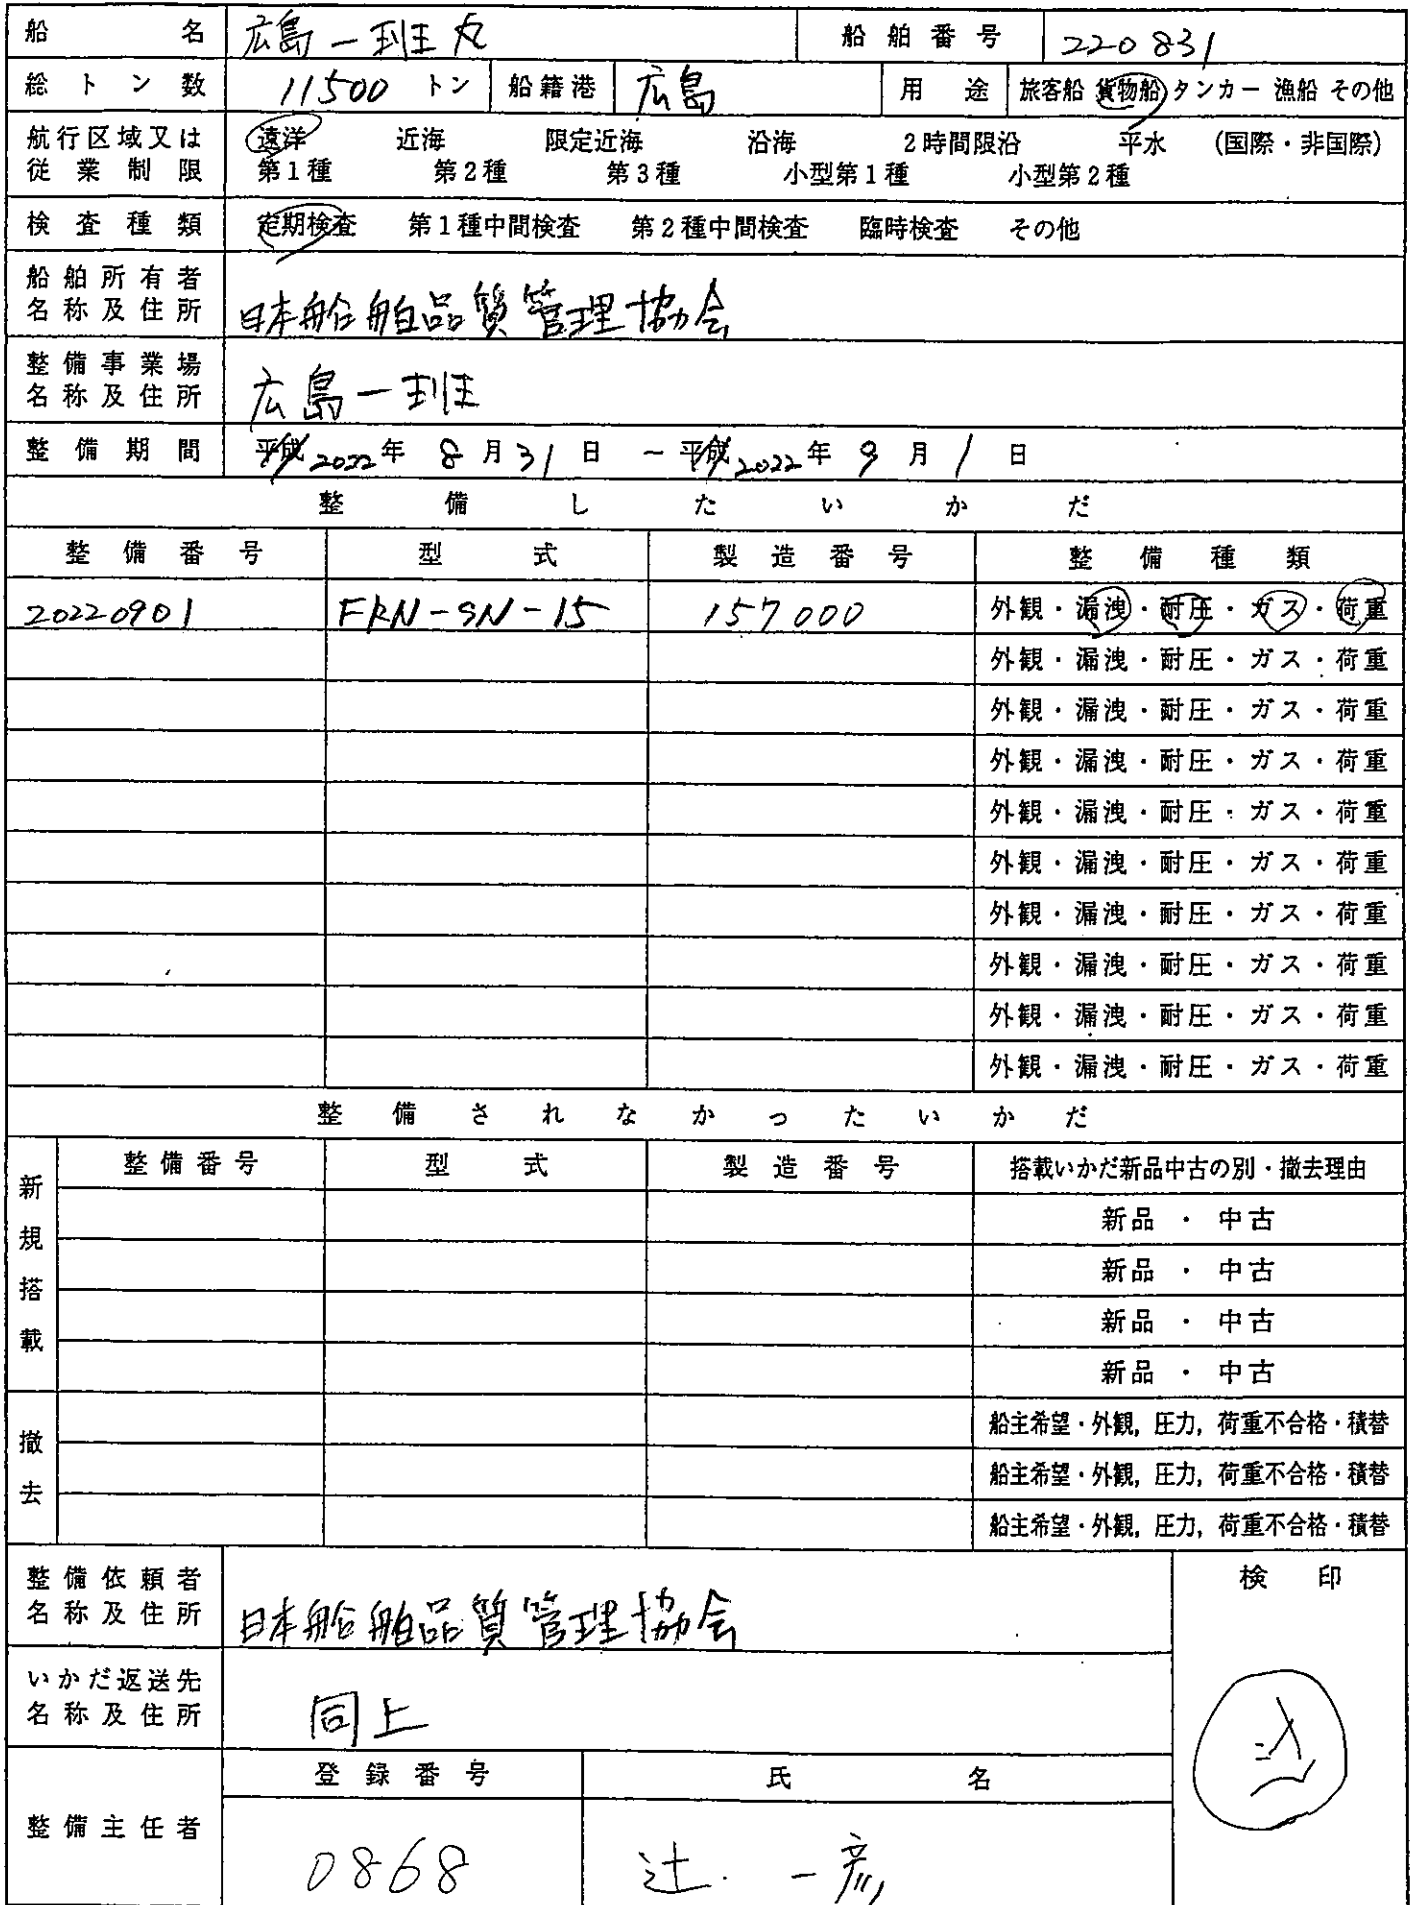 船名 広島一班丸 船舶番号 220831
総トン数 11500 トン 船籍港 広島 用途 旅客船 貨物船 タンカー 漁船 その他
航行区域又は 遠洋 近海 限定近海 沿海 2時間限沿 平水 (国際・非国際)
従業制限 第1種 第2種 第3種 小型第1種 小型第2種
検査種類 定期検査 第1種中間検査 第2種中間検査 臨時検査 その他
船舶所有者
名称及住所 日本船舶品質管理協会
整備事業場
名称及住所 広島一班
整備期間 平成2022年 8月31日 ~ 平成2022年 9月1日
整備したいかだ
整備番号 型式 製造番号 整備種類
20220901 FRN-SN-15 157000 外観・漏洩・耐圧・ガス・荷重
外観・漏洩・耐圧・ガス・荷重
外観・漏洩・耐圧・ガス・荷重
外観・漏洩・耐圧・ガス・荷重
外観・漏洩・耐圧・ガス・荷重
外観・漏洩・耐圧・ガス・荷重
外観・漏洩・耐圧・ガス・荷重
外観・漏洩・耐圧・ガス・荷重
外観・漏洩・耐圧・ガス・荷重
外観・漏洩・耐圧・ガス・荷重
整備されなかったいかだ
新規搭載 整備番号 型式 製造番号 搭載いかだ新品中古の別・撤去理由
新品・中古
新品・中古
新品・中古
新品・中古
撤去 船主希望・外観,圧力,荷重不合格・積替
船主希望・外観,圧力,荷重不合格・積替
船主希望・外観,圧力,荷重不合格・積替
整備依頼者 検印
名称及住所 日本船舶品質管理協会
いかだ返送先
名称及住所 同上 辻
登録番号 氏名
整備主任者 0868 辻 一彦